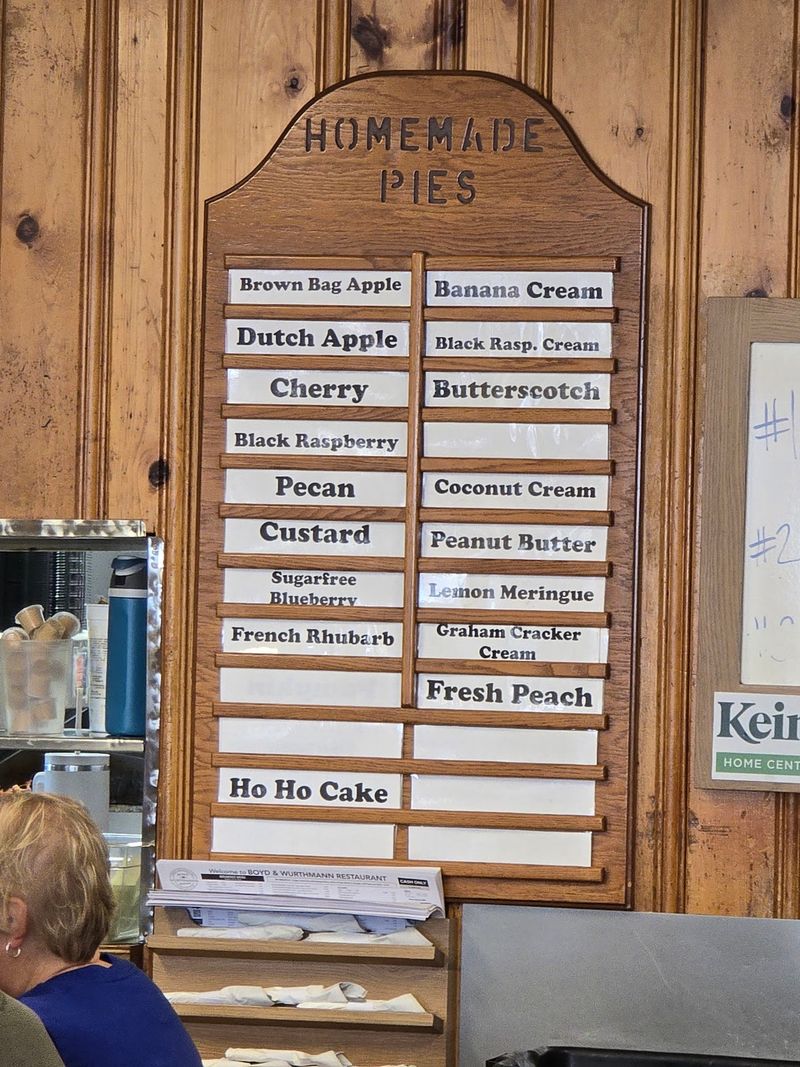 HOMEMADE
PIES
Brown Bag Apple
Dutch Apple
Cherry
Black Raspberry
Pecan
Custard
Sugarfree
Blueberry
French Rhubarb
Ho Ho Cake
Banana Cream
Black Rasp. Cream
Butterscotch
Coconut Cream
Peanut Butter
Lemon Meringue
Graham Cracker
Cream
Fresh Peach
#1
#2
HOME CENT
Welcome to BOYD & WURTHMANN RESTAURANT
CASH ONLY